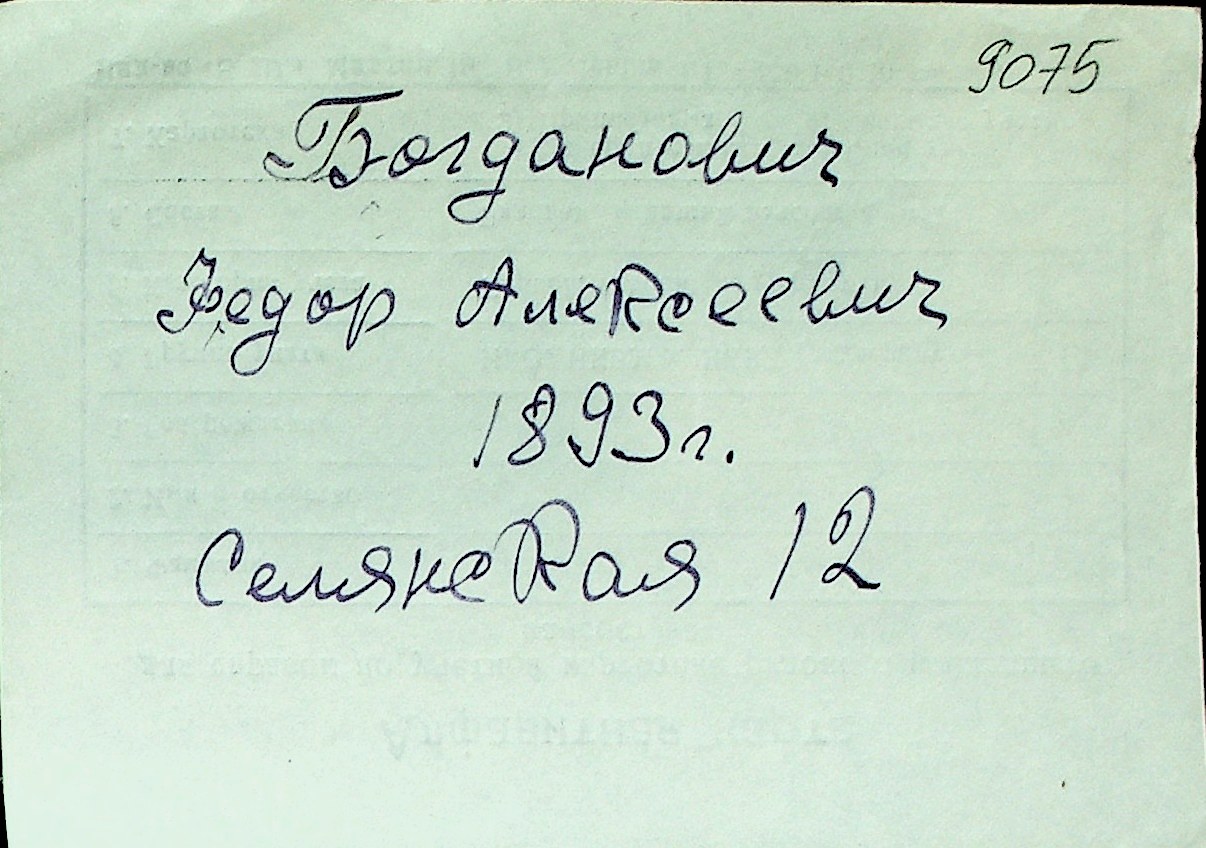 9075
Богданович
Федор Алексеевич
1893г.
Селянская 12